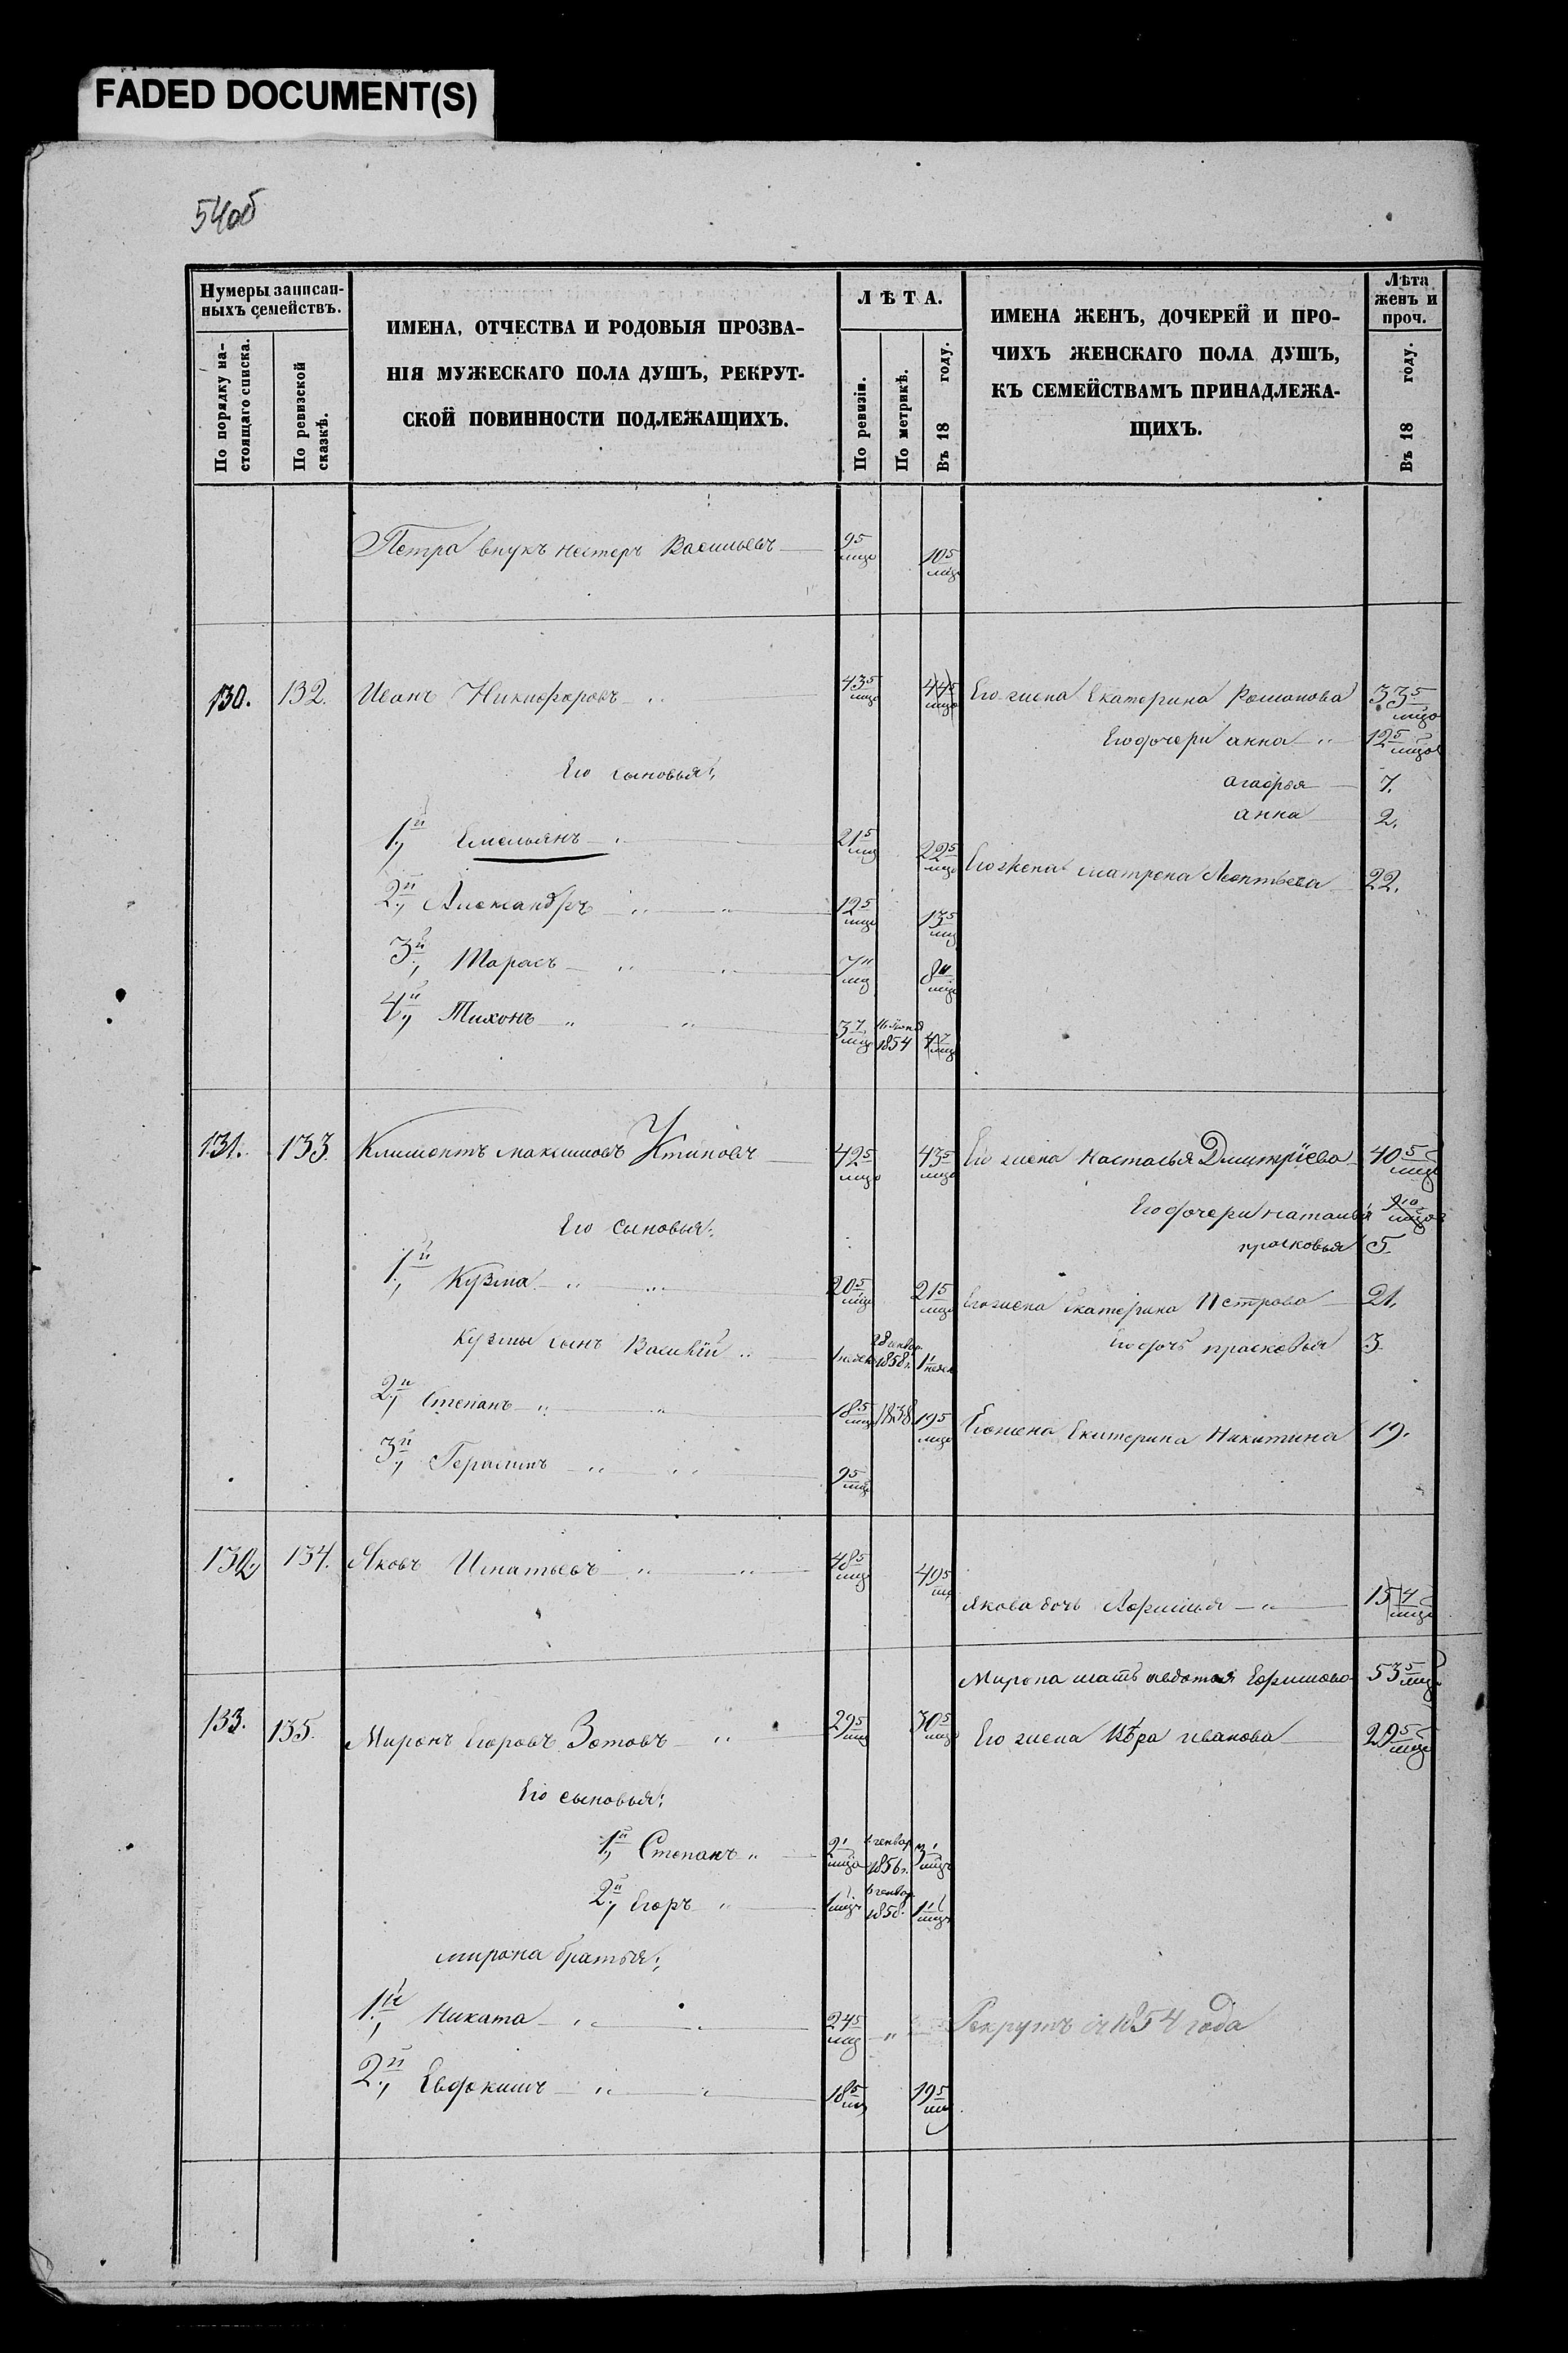 FADED DOCUMENT(S)
54об
Нумеры записан-
ныхъ семействъ.
По порядку на-
стоящаго списка.
По ревизской
сказкѣ.
ИМЕНА, ОТЧЕСТВА И РОДОВЫЯ ПРОЗВА-
НІЯ МУЖЕСКАГО ПОЛА ДУШЪ, РЕКРУТ-
СКОЙ ПОВИННОСТИ ПОДЛЕЖАЩИХЪ.
ЛѢТА.
По ревизіи.
По метрикѣ.
Въ 18 году.
ИМЕНА ЖЕНЪ, ДОЧЕРЕЙ И ПРО-
ЧИХЪ ЖЕНСКАГО ПОЛА ДУШЪ,
КЪ СЕМЕЙСТВАМЪ ПРИНАДЛЕЖА-
ЩИХЪ.
Лѣта
женъ и
проч.
Въ 18 году.
Петра внукъ нестеръ Васильевъ 9 5/мцо 10 5/мцо
130. 132. Иванъ Никифоровъ 43 5/мцо 44 5/мцо Его жена Екатерина Романова 33 5/мцо
Его дочери анна 12 5/мцо
Его сыновья:
агафья 7.
анна 2.
1й Емельянъ 21 5/мц 22 5/мцо Его жена матрена Леонтьева 22.
2й Александръ 12 5/мцо 13 5/мц
3й Тарасъ 7 11/мц 8 11/мцо
4й Тихонъ 3 7/мцо 16 Іюня 1854 4 7/мцо
131. 133. Климентъ максимовъ 42 5/мцо 43 5/мцо Его жена Настасья Дмитріева 40 5/мцо
Его дочери наталья
Его сыновья:
прасковья 5.
1й Кузма 20 5/мцо 21 5/мцо Его жена Екатерина Петрова 21.
Кузмы сынъ Василій 28 генвар 1858 г. Его дочь прасковья 3.
2й Степанъ 18 5/мцо 1838 19 5/мцо Его жена Екатерина Никитина 19.
3й Герасимъ 9 5/мцо
132. 134. Яковъ Игнатьевъ 48 5/мцо 49 5/мц
якова дочь 15 4/мцо
Мирона мать авдотья Ефимова 53 5/мцо
133. 135. Миронъ Егоровъ Зотовъ 29 5/мц 30 5/мцо Его жена Вѣра иванова 29 5/мцо
Его сыновья:
1й Степанъ 2 1/мцо генвар 1856 г. 3 1/мцъ
2й Егоръ 1 мцъ 6 генвар 1858. 1 мцъ
мирона братья:
1й Никита 24 5/мцо Рекрутъ съ 1854 года
2й Евдокимъ 18 5/мц 19 5/мц